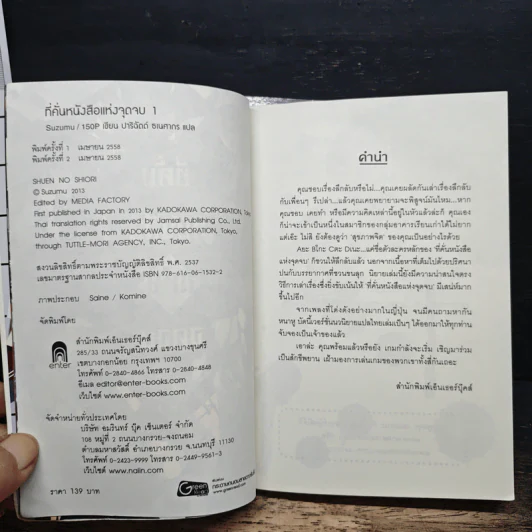 ที่คั่นหนังสือแห่งจุดจบ 1
Suzumu / 150P เขียน ปาริฉัตถ์ ชเนศากร แปล
พิมพ์ครั้งที่ 1 เมษายน 2558
พิมพ์ครั้งที่ 2 เมษายน 2558
SHUEN NO SHIORI
© Suzumu 2013
Edited by MEDIA FACTORY
First published in Japan in 2013 by KADOKAWA CORPORATION, Tokyo.
Thai translation rights reserved by Jamsai Publishing Co., Ltd.
Under the license from KADOKAWA CORPORATION, Tokyo
through TUTTLE-MORI AGENCY, INC., Tokyo.
สงวนลิขสิทธิ์ตามพระราชบัญญัติลิขสิทธิ์ พ.ศ. 2537
เลขมาตรฐานสากลประจำหนังสือ ISBN 978-616-06-1532-2
ภาพประกอบ Saine / Komine
จัดพิมพ์โดย
enter
สำนักพิมพ์เอ็นเธอร์บุ๊คส์
285/33 ถนนจรัญสนิทวงศ์ แขวงบางขุนศรี
เขตบางกอกน้อย กรุงเทพฯ 10700
โทรศัพท์ 0-2840-4866 โทรสาร 0-2840-4848
อีเมล editor@enter-books.com
เว็บไซต์ www.enter-books.com
จัดจำหน่ายทั่วประเทศโดย
บริษัท อมรินทร์ บุ๊ค เซ็นเตอร์ จำกัด
108 หมู่ที่ 2 ถนนบางกรวย-จงถนอม
ตำบลมหาสวัสดิ์ อำเภอบางกรวย จ.นนทบุรี 11130
โทรศัพท์ 0-2423-9999 โทรสาร 0-2449-9561-3
เว็บไซต์ www.naiin.com
ราคา 139 บาท
Green
คำนำ
คุณชอบเรื่องลึกลับหรือไม่...คุณเคยผลัดกันเล่าเรื่องลึกลับ
กับเพื่อนๆ รึเปล่า...แล้วคุณเคยพยายามจะพิสูจน์มันไหม...หาก
คุณชอบ เคยทำ หรือมีความคิดเหล่านี้อยู่ในหัวแล้วล่ะก็ คุณเอง
ก็น่าจะเข้าเป็นหนึ่งในสมาชิกของกลุ่มอาคารเรียนเก่าได้ไม่ยาก
แต่เอ๊ะ ไม่สิ ยังต้องดูว่า 'สุขภาพจิต' ของคุณเป็นอย่างไรด้วย
แค่ชื่อตัวละครหลักของ 'ที่คั่นหนังสือ
แห่งจุดจบ' ก็ชวนให้ฝึกลับแล้ว นอกจากเนื้อหาที่เต็มไปด้วยปริศนา
ปนกับบรรยากาศที่ชวนขนลุก นิยายเล่มนี้ยังมีความน่าสนใจตรง
วิธีการเล่าเรื่องซึ่งยิ่งขับเน้นให้ 'ที่คั่นหนังสือแห่งจุดจบ' มีเสน่ห์มาก
ขึ้นไปอีก
จากเพลงที่โด่งดังอย่างมากในญี่ปุ่น จนมีคนถามหากัน
ได้ออกมาให้ทุกท่าน
จับจองเป็นเจ้าของแล้ว
เอาล่ะ คุณพร้อมแล้วหรือยัง เกมกำลังจะเริ่ม เชิญมาร่วม
เป็นสักขีพยาน เฝ้ามองการเล่นเกมของพวกเขาทั้งสี่กันเถอะ
สำนักพิมพ์เอ็นเธอร์บุ๊คส์